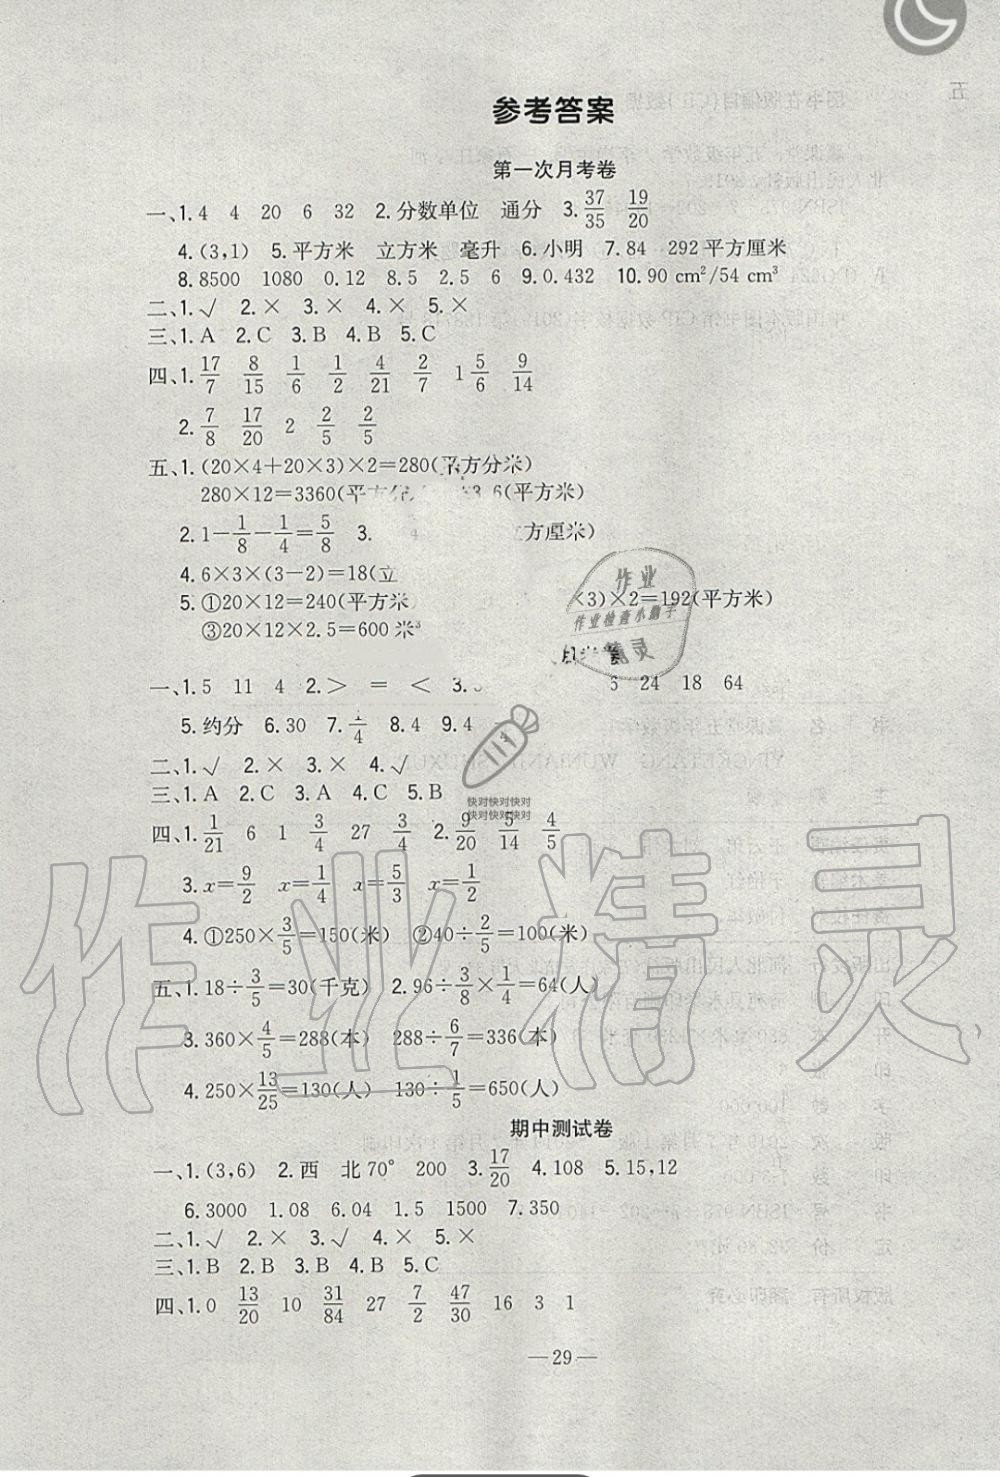 参考答案
第一次月考卷
一、1.4 4 20 6 32 2.分数单位 通分 3.37/35 19/20
4.(3,1) 5.平方米 立方米 毫升 6.小明 7.84 292平方厘米
8.8500 1080 0.12 8.5 2.5 6 9.0.432 10.90 cm²/54 cm³
二、1.√ 2.× 3.× 4.× 5.×
三、1.A 2.C 3.B 4.B 5.C
四、1.17/7 8/15 1/6 1/2 4/21 2/7 1 5/6 9/14
2.7/8 17/20 2 2/5 2/5
五、1.(20×4+20×3)×2=280(平方分米)
280×12=3360(平方分 6(平方米)
2.1-1/8-1/4=5/8 3. 方厘米)
4.6×3×(3-2)=18(立
5.①20×12=240(平方米 ×3)×2=192(平方米)
③20×12×2.5=600 米³
一、1.5 11 4 2.> = < 3. 24 18 64
5.约分 6.30 7. /4 8.4 9.4
二、1.√ 2.× 3.× 4.√
三、1.A 2.C 3.A 4.C 5.B
四、1.1/21 6 1 3/4 27 3/4 2.9/20 5/14 4/5
3.x=9/2 x=1/4 x=5/3 x=1/2
4.①250×3/5=150(米) ②40÷2/5=100(米)
五、1.18÷3/5=30(千克) 2.96÷3/8×1/4=64(人)
3.360×4/5=288(本) 288÷6/7=336(本)
4.250×13/25=130(人) 130÷1/5=650(人)
期中测试卷
一、1.(3,6) 2.西 北70° 200 3.17/20 4.108 5.15,12
6.3000 1.08 6.04 1.5 1500 7.350
二、1.√ 2.× 3.√ 4.× 5.×
三、1.B 2.B 3.B 4.B 5.C
四、1.0 13/20 10 31/84 27 7/2 47/30 16 3 1
—29—
作业
作业检查小帮手
精灵
快对快对快对
快对快对快对
作业精灵